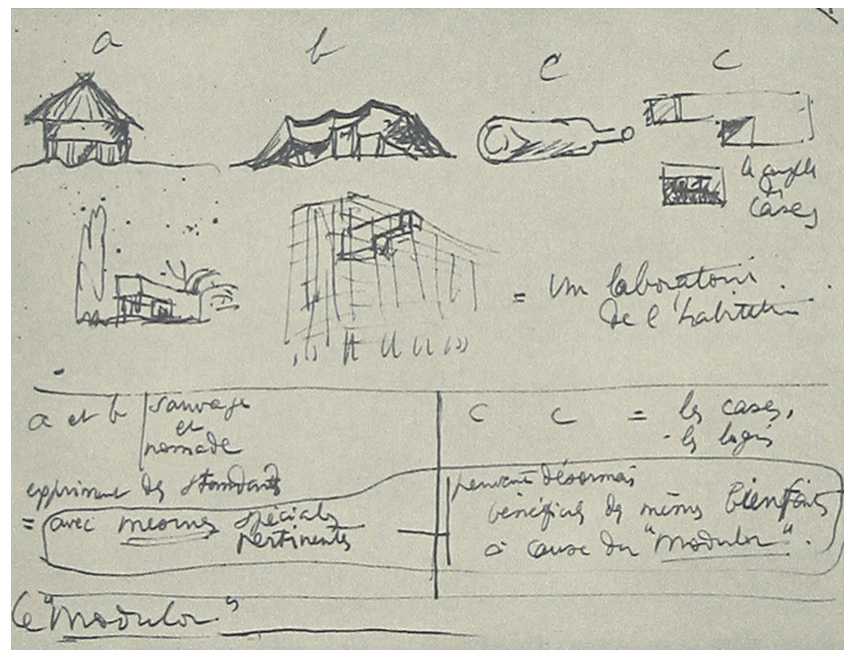 a
b
c
c
le
des
cases
= un laboratoire
de l'habitation
a et b
sauvage
et
nomade
expriment des standards
= avec mesures spéciales
pertinentes
c c = les cases,
- les logis
peuvent désormais
bénéficier des mêmes bienfaits
à cause du "Modulor".
le "Modulor"